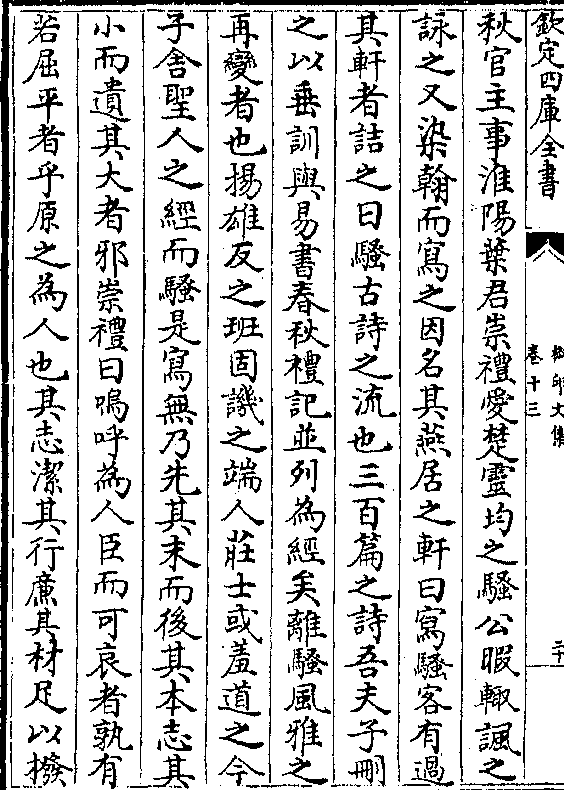 欽定四庫全書
卷十三
二十
秋官主事淮陽葉君崇禮愛楚靈均之騷公暇輙諷之
詠之又染翰而寫之因名其燕居之軒曰寫騷客有過
其軒者詰之曰騷古詩之流也三百篇之詩吾夫子刪
之以垂訓與易書春秋禮記並列為經矣離騷風雅之
再變者也揚雄反之班固譏之端人莊士或羞道之今
子舍聖人之經而騷是寫無乃先其末而後其本志其
小而遺其大者邪崇禮曰嗚呼為人臣而可哀者孰有
若屈平者乎原之為人也其志潔其行廉其材足以撥